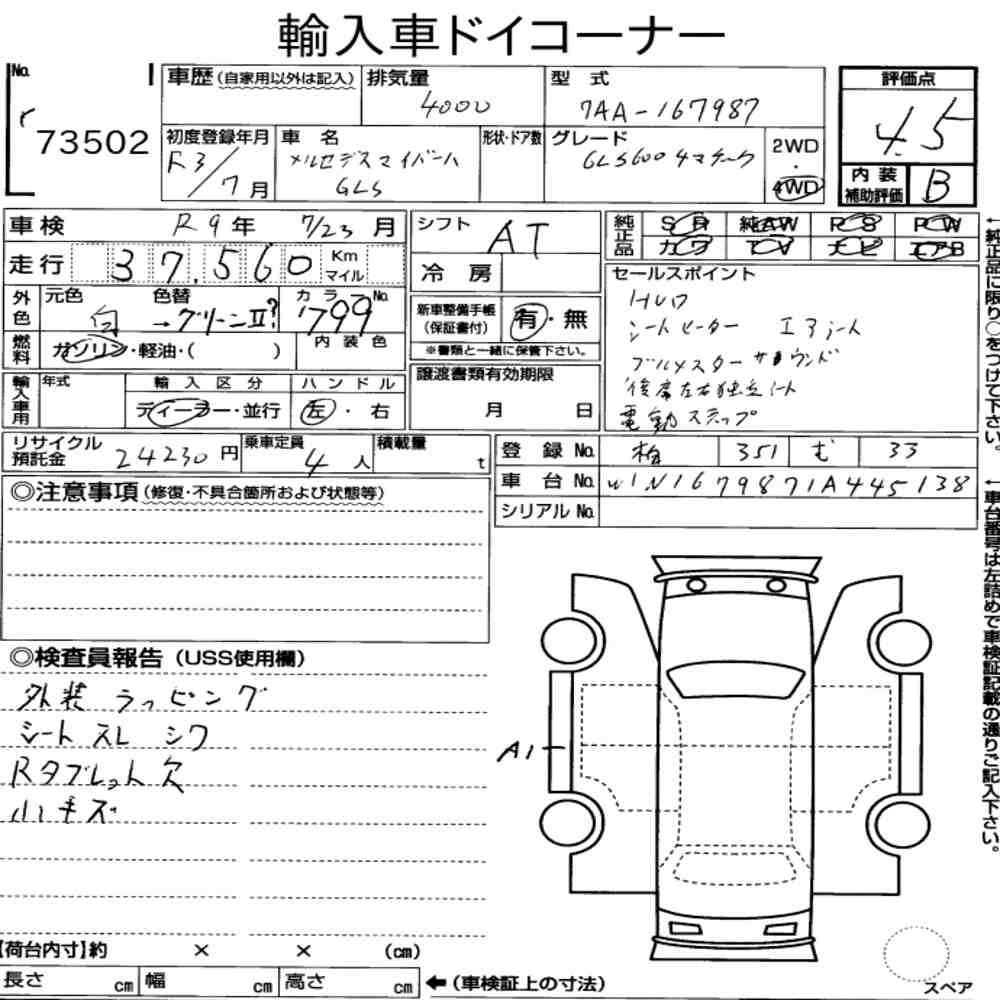 輸入車ドイコーナー
No. 73502
車歴(自家用以外は記入) 排気量 4000 型式 7AA-167987 評価点 4.5
初度登録年月 R3/7月 車名 メルセデスマイバーハ GLS 形状・ドア数 グレード GLS600 4マチーク 2WD・4WD 内装補助評価 B
車検 R9年 7/23月 シフト AT 純正品 SR 純AW PS PW
走行 37,560 Km マイル 冷房 カワ TV ナビ エアB
外色 元色 白 色替 →グリーンⅡ? カラーNo. 799
新車整備手帳(保証書付) 有・無
※書類と一緒に保管下さい。
燃料 ガソリン・軽油・( ) 内装色
セールスポイント
HUD
シートヒーター エアシート
ブルメスターサラウンド
後席左右独立シート
電動ステップ
輸入車用 年式 輸入区分 ディーラー・並行 ハンドル 左・右
譲渡書類有効期限 月 日
リサイクル預託金 24230円 乗車定員 4人 積載量 t
登録No. 柏 351 む 33
車台No. W1N1679871A445138
シリアルNo.
◎注意事項(修復・不具合箇所および状態等)
◎検査員報告(USS使用欄)
外装 ラッピング
シート スレ シワ
Rタブレット欠
小キズ
A1
【荷台内寸】約 × × (cm)
長さ cm 幅 cm 高さ cm ←(車検証上の寸法)
スペア
←純正品に限り○をつけて下さい。
←車台番号は左詰めで車検証記載の通りご記入下さい。